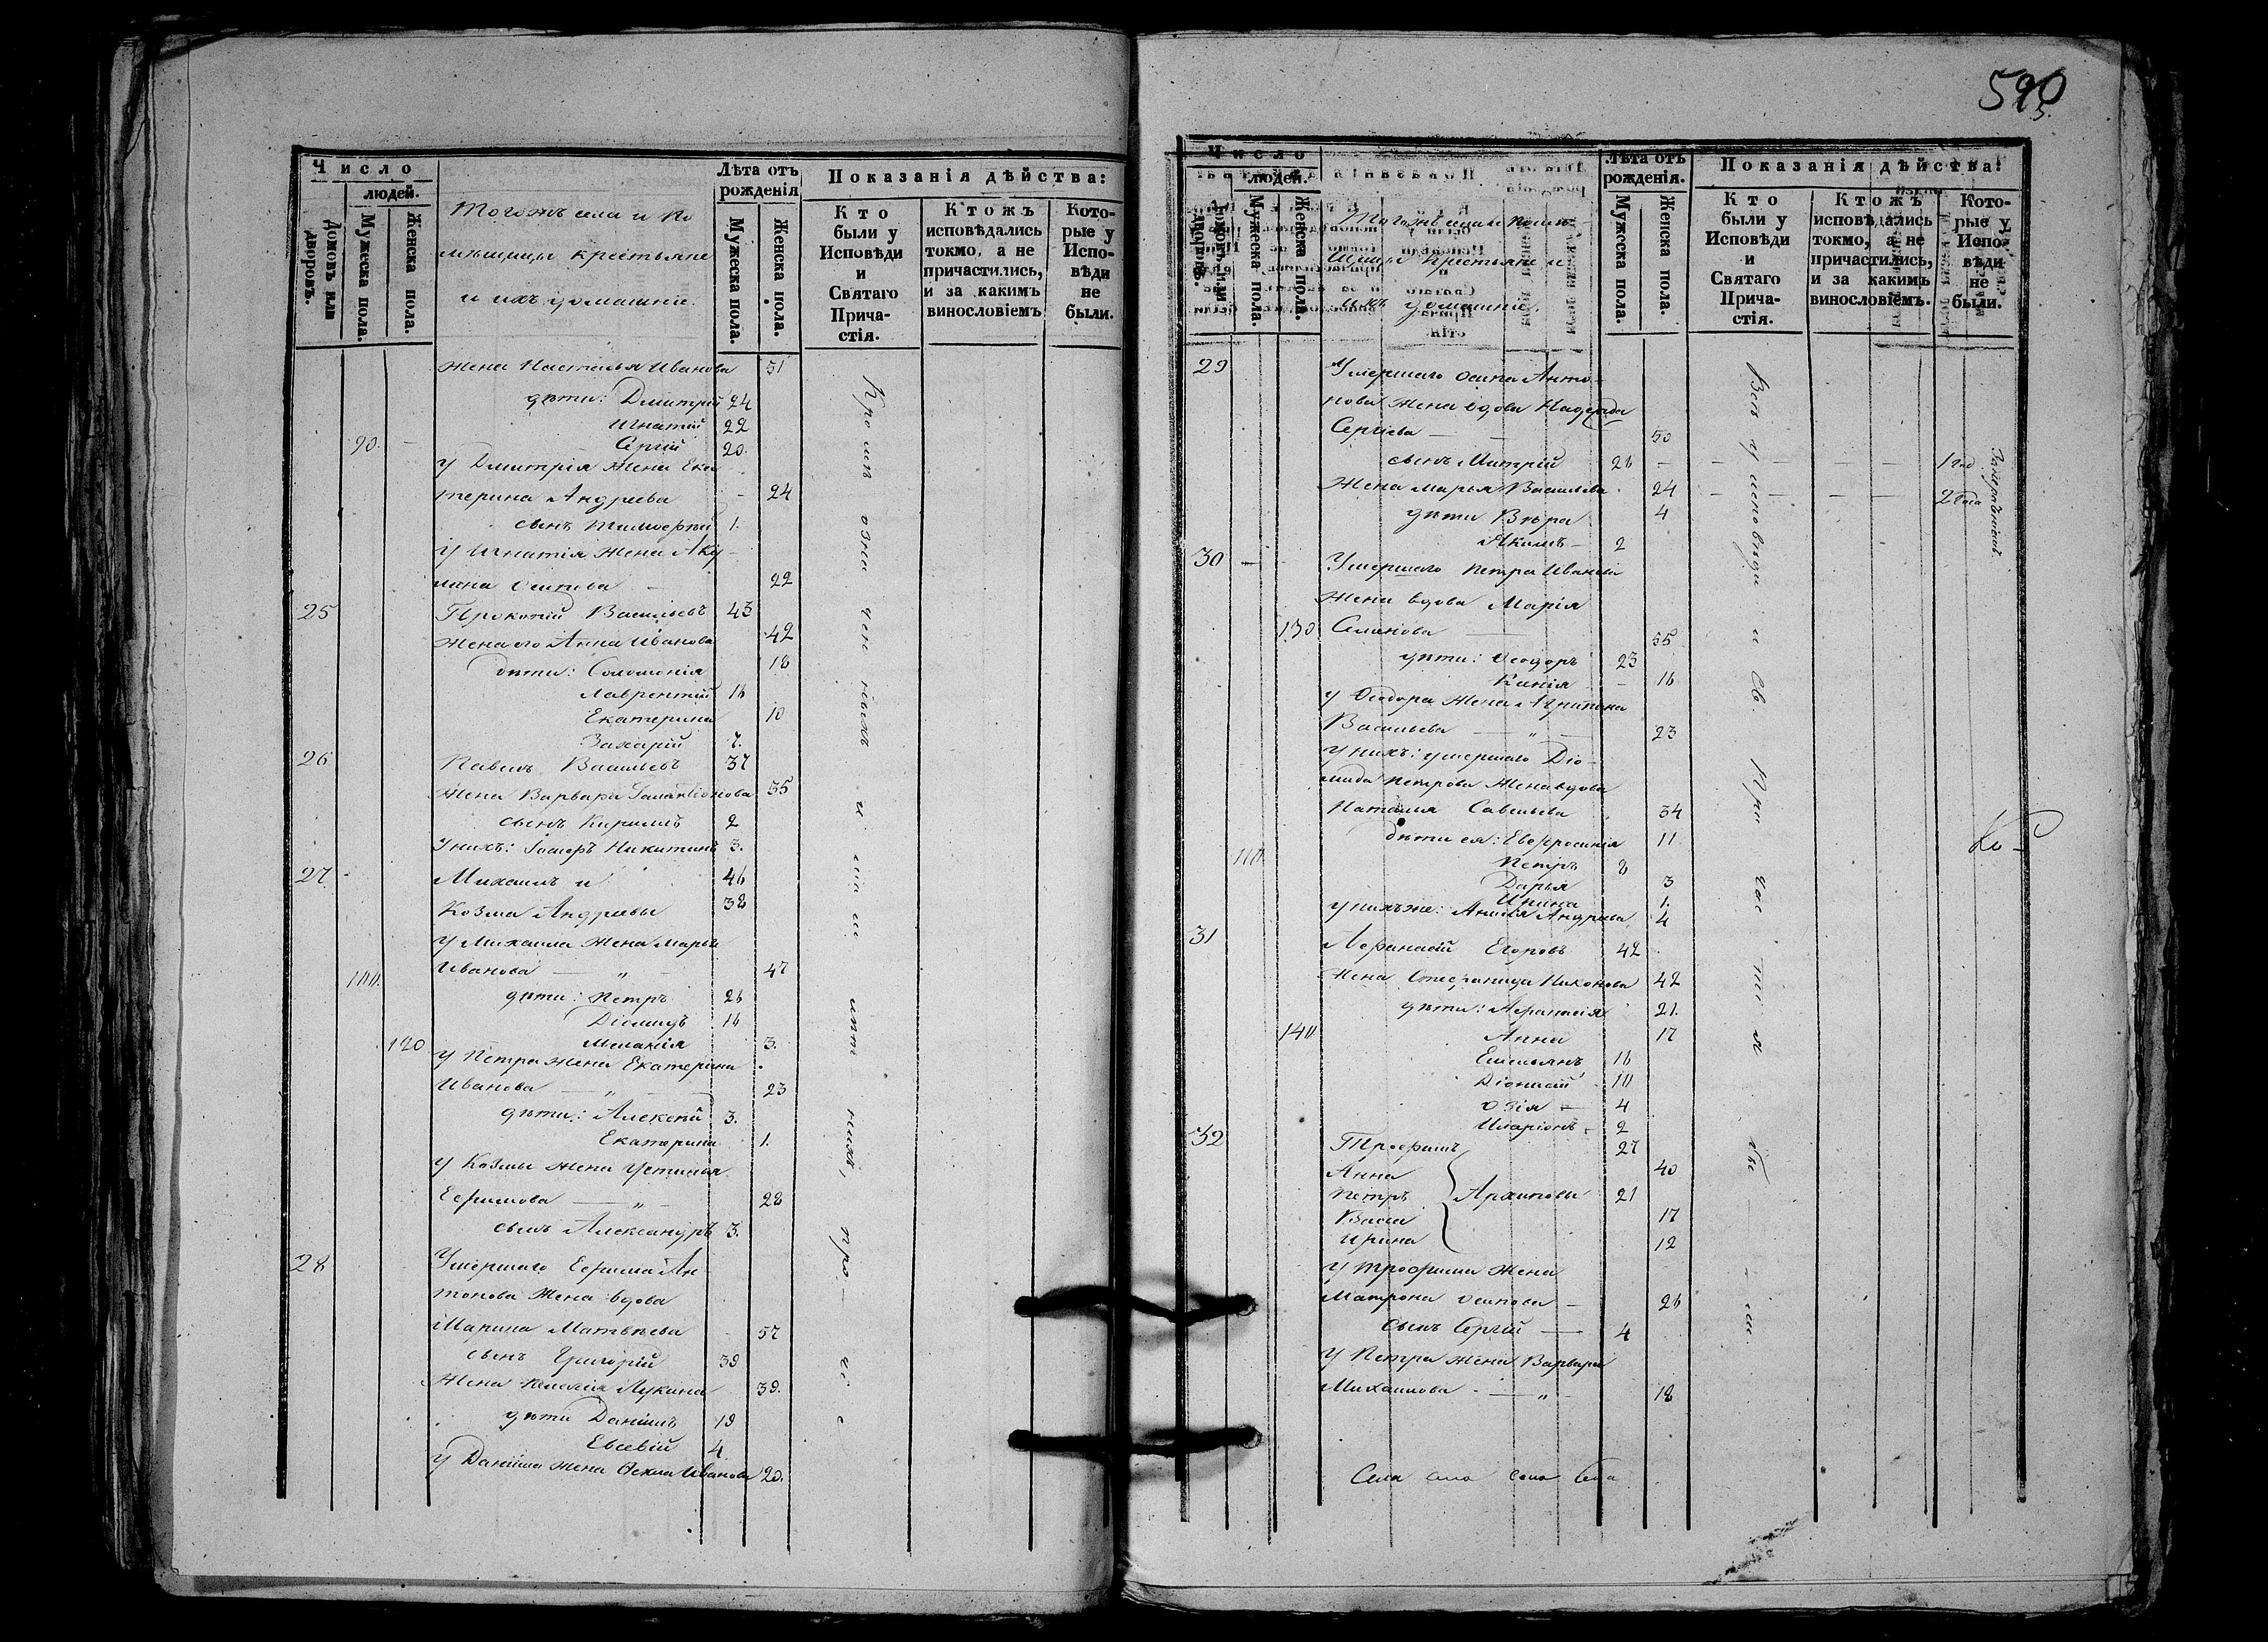 Число
людей.
Домовъ или дворовъ.
Мужеска пола.
Женска пола.
Тогожъ села и По
мѣщицы крестьяне
и ихъ домашніе.
Лѣта отъ
рожденія
Мужеска пола.
Женска пола.
Показанія дѣйства:
Кто
были у
Исповѣди
и
Святаго
Прича-
стія.
Ктожъ
исповѣдались
токмо, а не
причастились,
и за какимъ
винословіемъ
Кото-
рые у
Испо-
вѣди
не
были.
жена Настасья Иванова 51
дѣти: Дмитрій 24
Игнатій 22
90. Сергій 20.
у Дмитрія жена Ека
терина Андреева 24
сынъ Тимоѳей 1.
у Игнатія жена Аку
лина Осипова 22
25 Прокопій Васильевъ 43
жена его Анна Иванова 42
дѣти: Соломонія 18
Лаврентій 16
Екатерина 10
Захарій 7.
26 Павелъ Васильевъ 37
жена Варвара Галактіонова 35
сынъ Кирилъ 2
у нихъ: Іосифъ Никитинъ 3.
27 Михаилъ и 46
Козма Андреевы 38
у Михаила жена Марья
Иванова 47
100.
дѣти: Петръ 26
Діомидъ 16
120 Меланія 3.
у Петра жена Екатерина
Иванова 23
дѣти: Алексѣй 3.
Екатерина 1.
у Козмы жена Устинья
Ефимова 28
сынъ Александръ 3.
28 Умершаго Ефима Ан
тонова жена вдова
Марина Матвѣева 57
сынъ Григорій 39
жена Пелагія Лукина 39.
дѣти Даніилъ 19
Евсевій 4
у Даніила жена Ѳекла Иванова 20.
590
Число
людей.
Домовъ или дворовъ.
Мужеска пола.
Женска пола.
Тогожъ села и помѣ-
щицы крестьяне и
ихъ домашніе.
Лѣта отъ
рожденія.
Мужеска пола.
Женска пола.
Показанія дѣйства:
Кто
были у
Исповѣди
и
Святаго
Прича-
стія.
Ктожъ
исповѣдались
токмо, а не
причастились,
и за какимъ
винословіемъ.
Кото-
рые у
Испо-
вѣди
не
были.
29 Умершаго Осипа Анто-
нова жена вдова Надежда
Сергіева 50
сынъ Митрій 26 1 год
жена Марья Васильева 24 2 года
дѣти Вѣра 4
Акимъ 2
30 Умершаго Петра Иванова
жена вдова Марія
130 Семенова 55
дѣти: Ѳеодоръ 23
Ксенія 16
у Ѳеодора жена Агрипина
Васильева 23
у нихъ: умершаго Діо
мида Петрова жена вдова
Наталья Савельева 34
дѣти ея: Евфросинія 11
110 Петръ 8
Дарья 3
Ирина 1.
у нихъ же: Анисія Андреева 4
31 Афанасій Егоровъ 42
жена Степанида Никонова 42
дѣти: Афанасія 21.
140 Анна 17
Емельянъ 16
Діонисій 10
Озія 4
Иларіонъ 2
32 Трофимъ 27
Анна 40
Петръ Архиповы 21
Васса 17
Ирина 12
у Трофима жена
Матрона Осипова 26
сынъ Сергій 4
у Петра жена Варвара
Михаилова 18
Села села села села